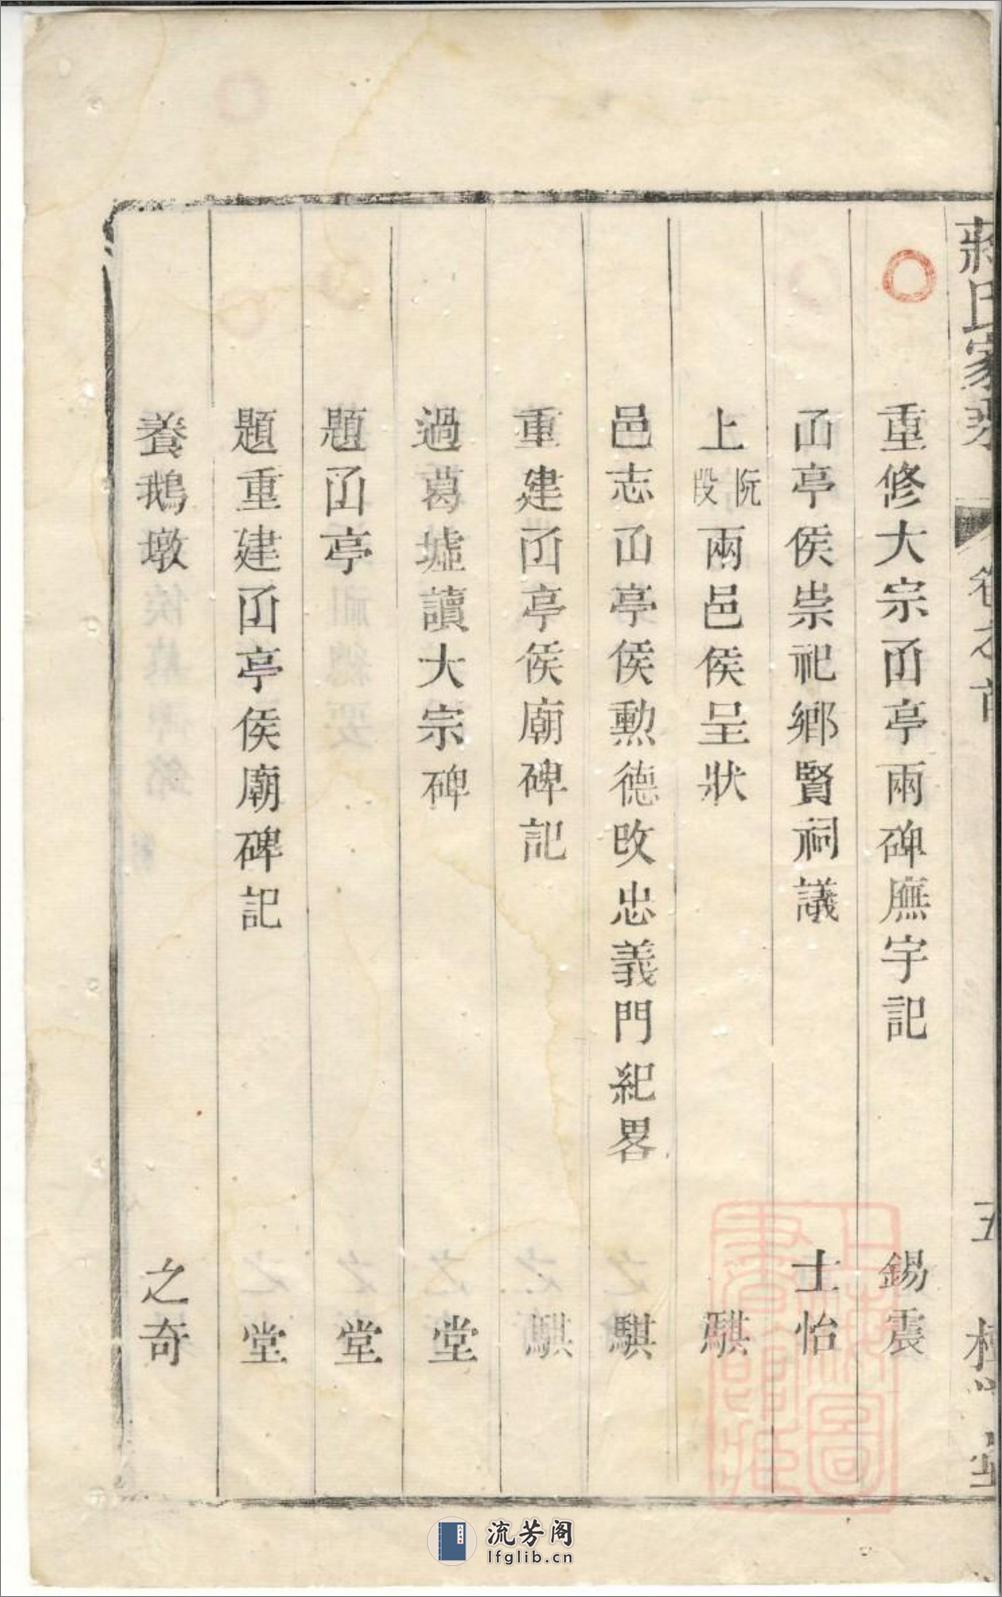 蔣氏家乘
卷之首
五
重修大宗㔽亭兩碑廡宇記 錫震
㔽亭侯崇祀鄉賢祠議 士怡
上阮段兩邑侯呈狀 騏
邑志㔽亭侯勲德攷忠義門紀畧 騏
重建㔽亭侯廟碑記 騏
過葛墟讀大宗碑 堂
題㔽亭 堂
題重建㔽亭侯廟碑記 堂
養鵝墩 之奇
上海圖書館藏
流芳阁
lfglib.cn